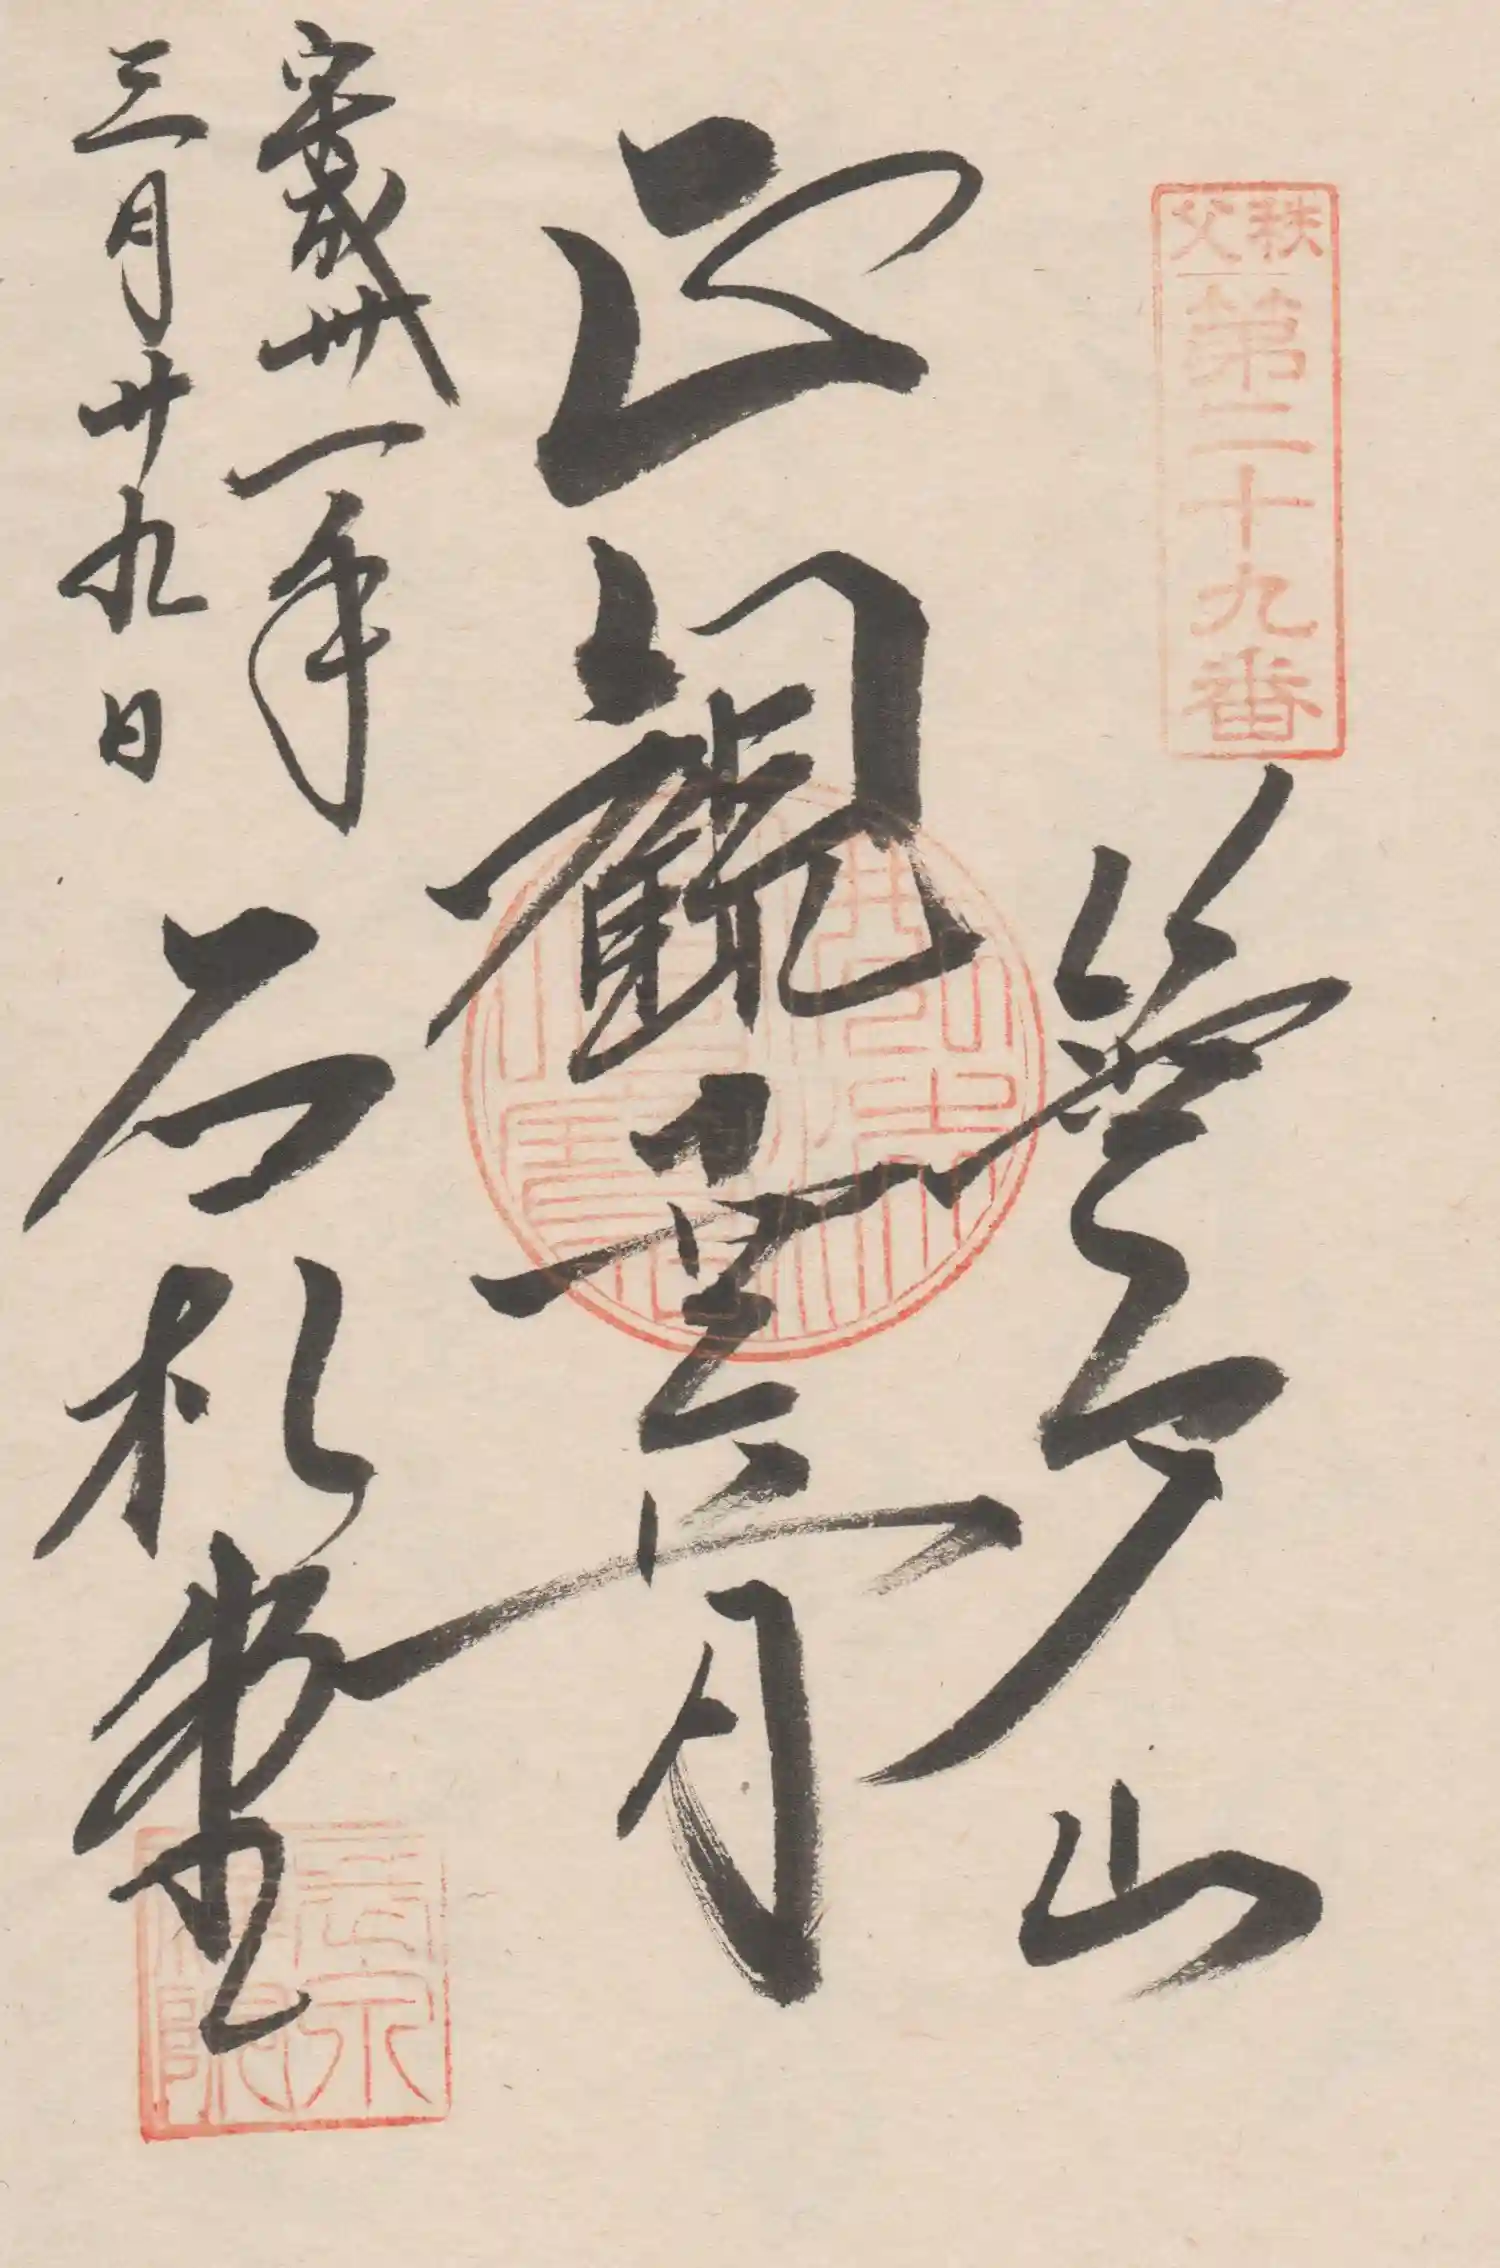 秩父
第二十九番
笹戸山
正観世音
平成卅一年
三月廿九日
石札堂